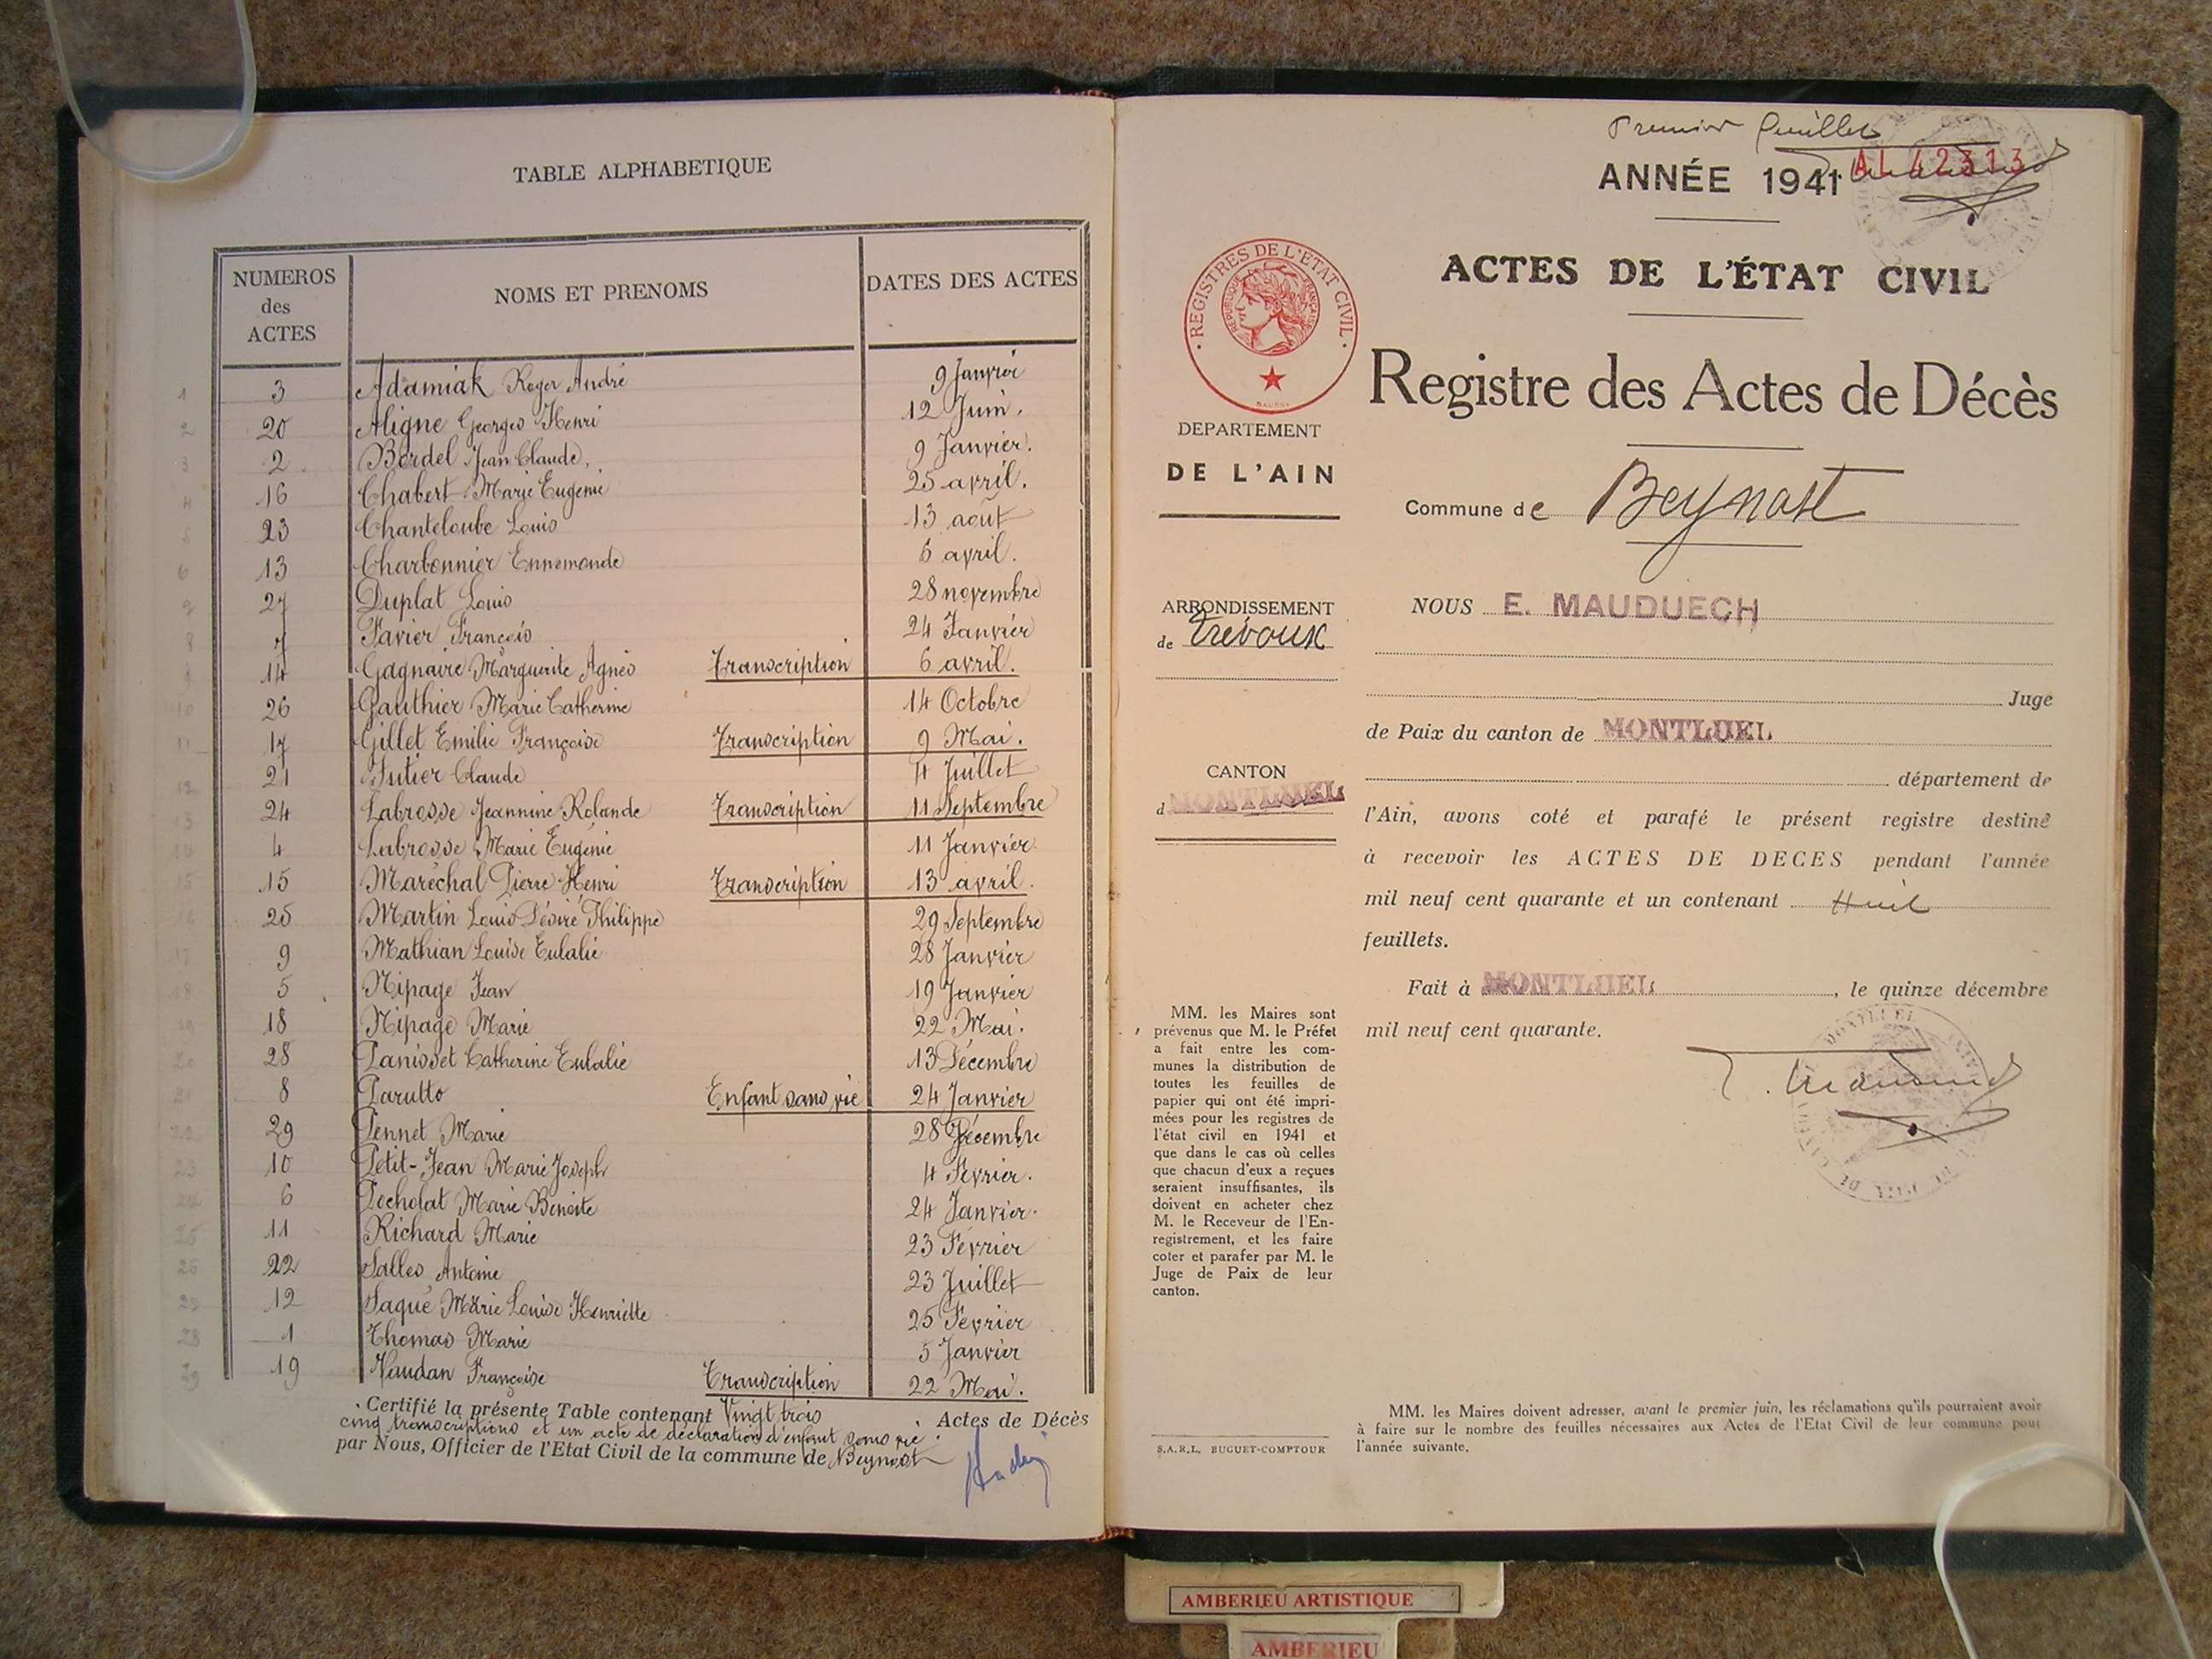 TABLE ALPHABETIQUE
NUMEROS des ACTES
NOMS ET PRENOMS
DATES DES ACTES
1 3 Adamiak Roger André 9 Janvier
2 20 Aligne Georges Henri 12 Juin.
3 2 Bordel Jean Claude, 9 Janvier.
4 16 Chabert Marie Eugénie 25 avril.
5 23 Chanteloube Louis 13 août
6 13 Charbonnier Ennemonde 6 avril.
7 27 Duplat Louis 28 novembre
8 7 Favier François 24 Janvier
9 14 Gagnaire Marguerite Agnès Transcription 6 avril.
10 26 Gauthier Marie Catherine 14 Octobre
11 17 Gillet Emilie Françoise Transcription 9 Mai.
12 21 Jutier Claude 4 Juillet
13 24 Labrosse Jeannine Rolande Transcription 11 Septembre
14 4 Labrosse Marie Eugénie 11 Janvier
15 15 Maréchal Pierre Henri Transcription 13 avril.
16 25 Martin Louis Désiré Philippe 29 Septembre
17 9 Mathian Louise Eulalie 28 Janvier
18 5 Nipage Jean 19 Janvier
19 18 Nipage Marie 22 Mai.
20 28 Panisset Catherine Eulalie 13 Décembre
21 8 Parutto Enfant sans vie 24 Janvier
22 29 Pennet Marie 28 Décembre
23 10 Petit-Jean Marie Joseph 4 Février.
24 6 Pocholat Marie Benoite 24 Janvier.
25 11 Richard Marie 23 Février
26 22 Salles Antoine 23 Juillet
27 12 Saqué Marie Louise Henriette 25 Février
28 1 Thomas Marie 5 Janvier
29 19 Vaudan Françoise Transcription 22 Mai.
Certifié la présente Table contenant Vingt trois Actes de Décès
cinq transcriptions et un acte de déclaration d'enfant sans vie.
par Nous, Officier de l'Etat Civil de la commune de Beynost
Premier feuillet
ANNÉE 1941 AL 42313
ACTES DE L'ÉTAT CIVIL
Registre des Actes de Décès
· REGISTRES DE L'ETAT CIVIL ·
REPUBLIQUE FRANÇAISE
DEPARTEMENT
DE L'AIN
Commune de Beynost
ARRONDISSEMENT
de Trévoux
CANTON
d MONTLUEL
NOUS E. MAUDUECH
Juge
de Paix du canton de MONTLUEL
département de
l'Ain, avons coté et parafé le présent registre destiné
à recevoir les ACTES DE DECES pendant l'année
mil neuf cent quarante et un contenant Huit
feuillets.
Fait à MONTLUEL, le quinze décembre
mil neuf cent quarante.
MM. les Maires sont
prévenus que M. le Préfet
a fait entre les com-
munes la distribution de
toutes les feuilles de
papier qui ont été impri-
mées pour les registres de
l'état civil en 1941 et
que dans le cas où celles
que chacun d'eux a reçues
seraient insuffisantes, ils
doivent en acheter chez
M. le Receveur de l'En-
registrement, et les faire
coter et parafer par M. le
Juge de Paix de leur
canton.
S.A.R.L. BUGUET-COMPTOUR
MM. les Maires doivent adresser, avant le premier juin, les réclamations qu'ils pourraient avoir
à faire sur le nombre des feuilles nécessaires aux Actes de l'Etat Civil de leur commune pour
l'année suivante.
AMBERIEU ARTISTIQUE
AMBERIEU